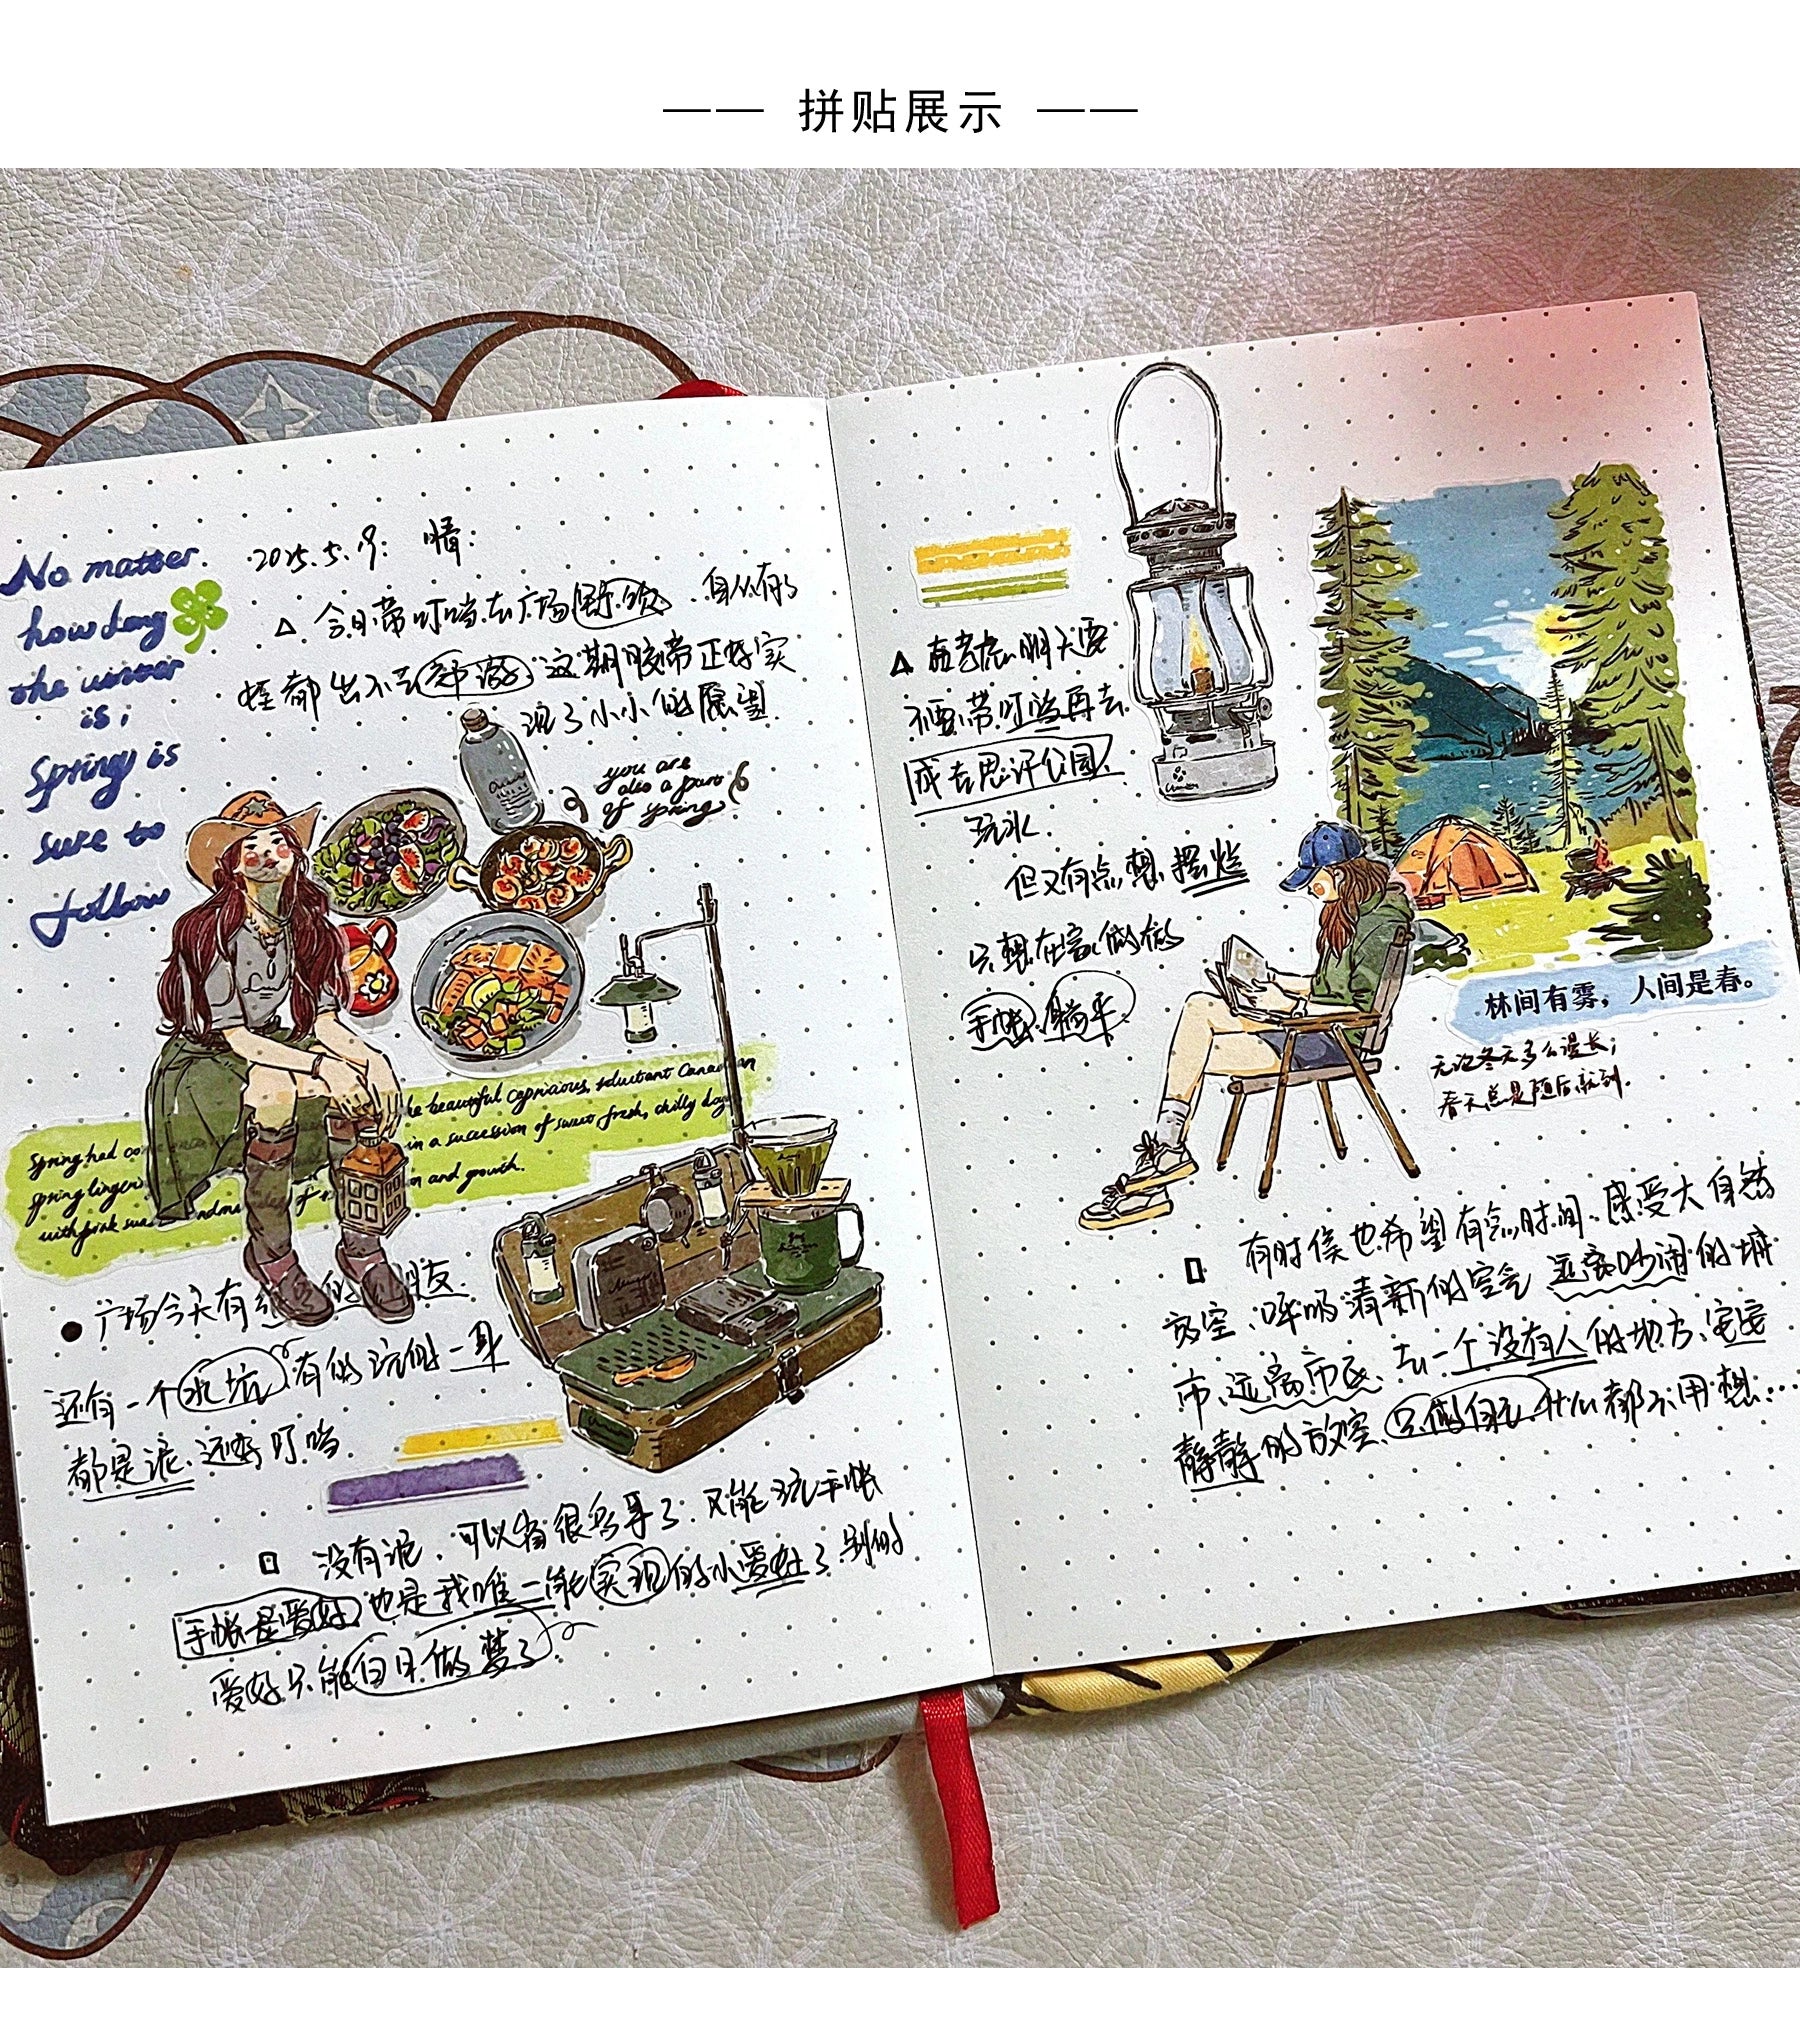 —— 拼贴展示 ——
No matter
how long
the winter
is,
Spring is
sure to
follow
2025.5.9: 晴:
△. 今日带叮当去广场野炊、自从有了
娃都出不去郊游 这期胶带正好实
现了小小的愿望.
you are
also a part
of spring
he beautiful capricious, reluctant Canadian
Spring had co
in a sucession of sweet fresh, chilly days
spring linger
n and growth.
with pink su
● 广场今天有很多的小朋友
还有一个水坑 有的玩的一身
都是泥、还好叮当
没有泥、可以省很多事了. 又能玩手帐
手帐是爱好 也是我唯一能实现的小爱好了 别的
爱好只能白日做梦了
△ 在考虑明天要
不要带叮当再去
成吉思汗公园
玩水.
但又有点想摆烂
只想在家做做
手帐 躺平.
林间有雾，人间是春。
无论冬天多么漫长;
春天总是随后就到.
有时候也希望有点时间、感受大自然
放空、呼吸清新的空气 远离吵闹的城
市、远离市区、去一个没有人的地方、安安
静静的放空、只做自己、什么都不用想...